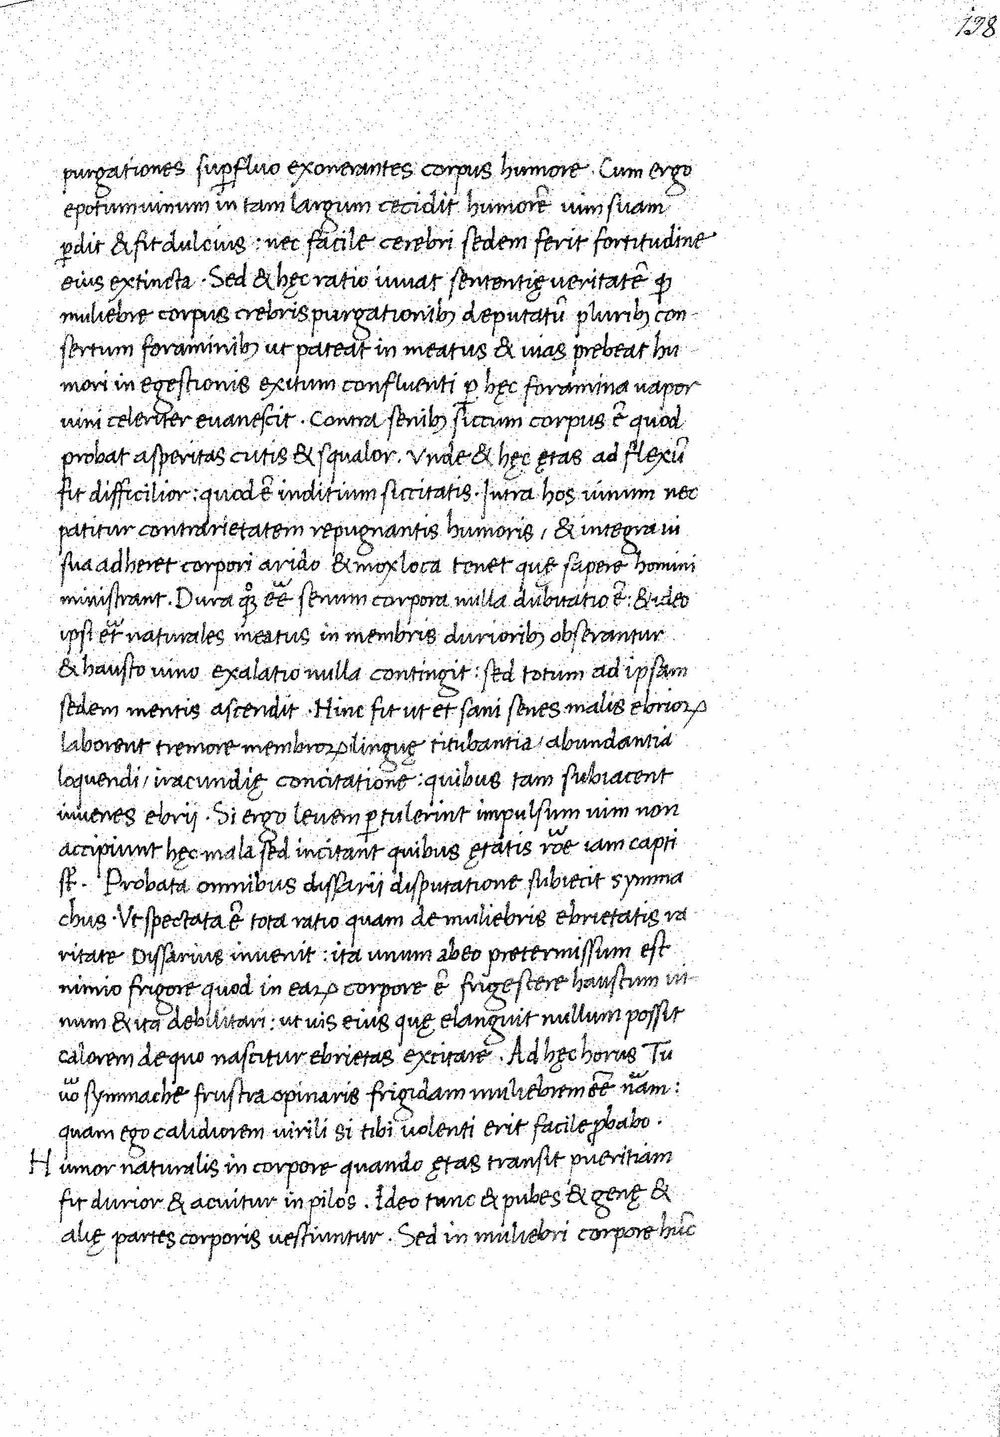 198
purgationes suꝑfluo exonerantes corpus humore. Cum ergo
epotum uinum in tam largum cecidit humorē uim suam
ꝑdit & fit dulcius : nec facile cerebri sedem ferit fortitudine
eius extincta. Sed & hęc ratio iuuat sententię ueritatē ꝙ
muliebre corpus crebris purgationibꝫ deputatū pluribꝫ con-
sertum foraminibꝫ ut pateat in meatus & uias prebeat hu
mori in egestionis exitum confluenti ꝑ hęc foramina uapor
uini celeriter euanescit. Contra senibꝫ siccum corpus ē quod
probat asperitas cutis & squalor. Vnde & hęc ętas ad flexū
fit difficilior : quod ē inditium siccitatis. Intra hos uinum nec
patitur contrarietatem repugnantis humoris, & integra ui
sua adheret corpori arido & mox loca tenet quę sapere homini
ministrant. Dura qꝫ eē senum corpora nulla dubitatio ē : & ideo
ipsi et naturales meatus in membris durioribꝫ obserantur
& hausto uino exalatio nulla contingit : sed totum ad ipsam
sedem mentis ascendit. Hinc fit ut et sani senes malis ebrioꝝ
laborent tremore membroꝝ linguę titubantia / abundantia
loquendi / iracundię concitatione : quibus tam subiacent
iuuenes ebrij. Si ergo leuem ꝑtulerint impulsum uim non
accipiunt hęc mala sed incitant quibus ętatis rōe iam capti
st̄. Probata omnibus dissarii disputatione subiecit symma
chus. Vt spectata ē tota ratio quam de muliebris ebrietatis ra
ritate Dissarius inuenit : ita unum ab eo pretermissum est
nimio frigore quod in eaꝝ corpore ē frigescere haustum ui-
num & ita debilitari : ut uis eius quę elanguit nullum possit
calorem de quo nascitur ebrietas excitare. Ad hęc horus Tu
uo symmache frustra opinaris frigidam muliebrem eē nam :
quam ego calidiorem uirili si tibi uolenti erit facile ꝓbabo.
Humor naturalis in corpore quando ętas transit pueritiam
fit durior & acuitur in pilos. Ideo tunc & pubes & genę &
alię partes corporis uestiuntur. Sed in muliebri corpore hūc